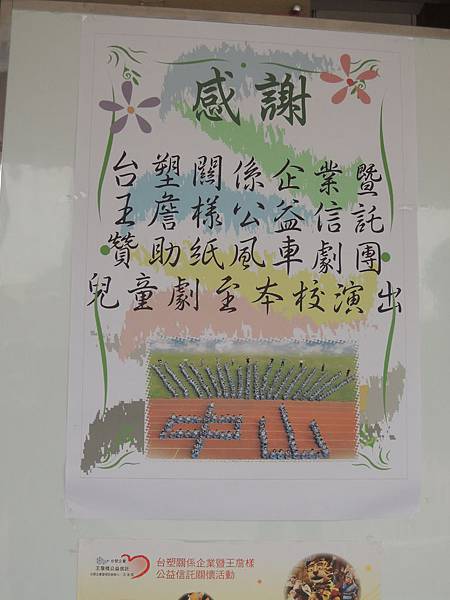 感謝
台塑關係企業暨
王詹樣公益信託
贊助紙風車劇團
兒童劇至本校演出
中山
台塑關係企業暨王詹樣
公益信託關懷活動
台塑企業
王詹樣公益信託